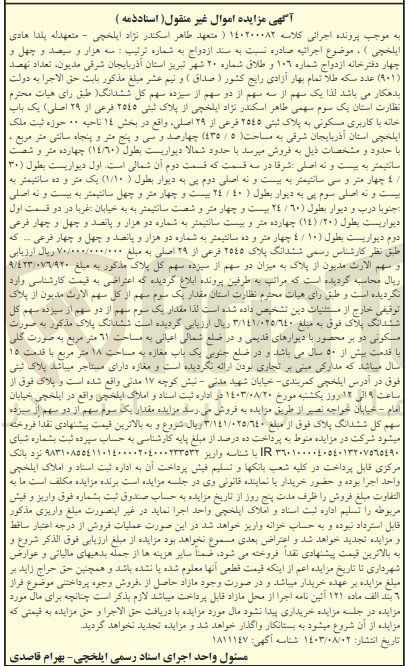 آگهی مزایده اموال غیر منقول( اسنادذمه )
به موجب پرونده اجرائی کلاسه ۱۴۰۲۰۰۰۸۲ ( متعهد طاهر اسکندر نژاد ایلخچی - متعهدله یلدا هادی
ایلخچی ) ، موضوع اجرائیه صادره نسبت به سند ازدواج به شماره ترتیب : سه هزار و سیصد و چهل و
چهار دفترخانه ازدواج شماره ۱۰۶ و طلاق شماره ۲۰ شهر تبریز استان آذربایجان شرقی مدیون، تعداد نهصد
(۹۰۱) عدد سکه طلا تمام بهار آزادی رایج کشور ( صداق ) و نیم عشر مبلغ مذکور بابت حق الاجرا به دولت
بدهکار می باشد لذا یک سهم از سه سهم از دو سهم از سیزده سهم کل ششدانگ( طبق رای هیات محترم
نظارت استان یک سوم سهمی طاهر اسکندر نژاد ایلخچی از پلاک ثبتی ۲۵۴۵ فرعی از ۲۹ اصلی) یک باب
خانه با کاربری مسکونی به پلاک ثبتی ۲۵۴۵ فرعی از ۲۹ اصلی، واقع در بخش ۱۴ ناحیه ۰۰ حوزه ثبت ملک
ایلخچی استان آذربایجان شرقی به مساحت( ۵ / ۴۳۵) چهارصد و سی و پنج متر و پنجاه سانتی متر مربع ،
با حدود و مشخصات ذیل به فروش میرسد با حدود شمالا دیواریست بطول (۱۴/۶۰) چهارده متر و شصت
سانتیمتر به بیست و نه اصلی :شرقا در سه قسمت که قسمت دوم آن شمالی است. اول دیواریست بطول (۳۰
/ ۴ چهار متر و سی سانتیمتر به بیست و نه اصلی دوم پی به دیوار بطول ( ۱/۱۰) یک متر و ده سانتیمتر به
بیست و نه اصلی سوم پی به دیوار بطول ( ۴۰ / ۲۴ بیست و چهار متر و چهل سانتیمتر به بیست و نه اصلی
:جنوبا درب و دیوار بطول (۶۰ / ۲۴ بیست و چهار متر و شصت سانتیمتر به به خیابان :غربا در دو قسمت اول
دیواریست بطول (۲۰/ ۱۴) چهارده متر و بیست سانتیمتر به شماره دو هزار و پانصد و چهل و چهار فرعی
دوم دیواریست بطول (۱۰ / ۴ چهار متر و ده سانتیمتر به شماره دو هزار و پانصد و چهل و چهار فرعی ... که
طبق نظر کارشناس رسمی ششدانگ پلاک ۲۵۴۵ فرعی از ۲۹ اصلی به مبلغ ۷۰/۰۰۰/۰۰۰/۰۰۰ ریال ارزیابی
و سهم الارث مدیون از پلاک به میزان دو سهم از سیزده سهم کل پلاک مذکور به مبلغ ۹/۴۲۳/۰۷۶/۹۲۰
ریال محاسبه گردیده است که مراتب به طرفین پرونده ابلاغ گردیده که اعتراضی به قیمت کارشناسی وارد
نگردیده است و طبق رای هیات محترم نظارت استان مقدار یک سوم سهم از کل سهم الارث مدیون از پلاک
توقیفی خارج از مستثنیات دین تشخیص داده شده است لذا مقدار یک سوم سهم از دو سهم از سیزده سهم کل
ششدانگ پلاک فوق به مبلغ ۳/۱۴۱/۰۲۵/۶۴۰ ریال ارزیابی گردیده است ششدانگ پلاک مذکور به صورت
مسکونی دو بر محصور با دیوارهای قدیمی و در ضلع شمالی اعیانی به مساحت ۶۱ متر مربع به صورت گلی
با قدمت بیش از ۵۰ سال می باشد و در ضلع جنوبی یک باب مغازه به مساحت ۱۸ متر مربع با قدمت ۱۵
سال میباشد که مدارکی مبنی بر تجاری بودن ارائه نگردیده است و مغازه دارای مستاجر میباشد پلاک ثبتی
فوق در آدرس ایلخچی کمربندی- خیابان شهید مدنی – نبش کوچه ۱۷ مدنی واقع شده است و پلاک فوق از
ساعت ۹ الی ۱۲ روز یکشنبه مورخ ۱۴۰۳/۰۸/۲۰ در اداره ثبت اسناد و املاک ایلخچی واقع در ایلخچی خیابان
امام - خیابان خواجه نصیر از طریق مزایده به فروش می رسد مزایده مقدار یک سوم سهم از دو سهم از سیزده
سهم کل ششدانگ پلاک فوق از مبلغ ۳/۱۴۱/۰۲۵/۶۴۰ ریال شروع و به بالاترین قیمت پیشنهادی نقدا فروخته
میشود شرکت در مزایده منوط به پرداخت ده درصد از مبلغ پایه کارشناسی به حساب سپرده ثبت بشماره شبای
IR با شناسه واریز نزد بانک
مرکزی قابل پرداخت در کلیه شعب بانکها و تسلیم فیش پرداخت آن به اداره ثبت اسناد و املاک ایلخچی
واحد اجرا بوده و حضور خریدار یا نماینده قانونی وی در جلسه مزایده است برنده مزایده مکلف است ما به
التفاوت مبلغ فروش را ظرف مدت پنج روز از تاریخ مزایده به حساب صندوق ثبت بشماره فوق واریز و فیش
مربوطه را تسلیم اداره ثبت اسناد و املاک ایلخچی واحد اجرا نماید در غیر اینصورت مبلغ واریزی مذکور
قابل استرداد نبوده و به حساب خزانه واریز خواهد شد در این صورت عملیات فروش از درجه اعتبار ساقط
و مزایده تجدید خواهد شد و اعتراض بعدی مسموع نخواهد بود مزایده از مبلغ ارزیابی فوق الذکر شروع و
به بالاترین قیمت پیشنهادی نقداً فروخته می شود، ضمناً سایر هزینه ها از جمله بدهیهای مالیاتی و عوارض
شهرداری تا تاریخ مزایده اعم از اینکه قیمت قطعی آنها معلوم شده یا نشده باشد و همچنین حق حراج زاید بر
مبلغ مزایده بر عهده خریدار میباشد و در صورت وجود مازاد حاصل از ،فروش وجوه پرداختنی موضوع فراز
۶ بند الف ماده ۱۲۱ آئین نامه اجرا از محل مازاد قابل پرداخت میباشد لازم بذکر است چنانچه برای مال مورد
مزایده در جلسه مزایده خریداری پیدا نشود مال مورد مزایده با دریافت حق الاجرا و حق مزایده به قیمتی که
مزایده از آن شروع میشود به بستانکار واگذار خواهد شد و مزایده تجدید نخواهد گردید.
تاریخ انتشار: ۱۴۰۳/۰۸/۰۲ شناسه آگهی: ۱۸۱۱۱۴۷
مسئول واحد اجرای اسناد رسمی ایلخچی- بهرام قاصدی